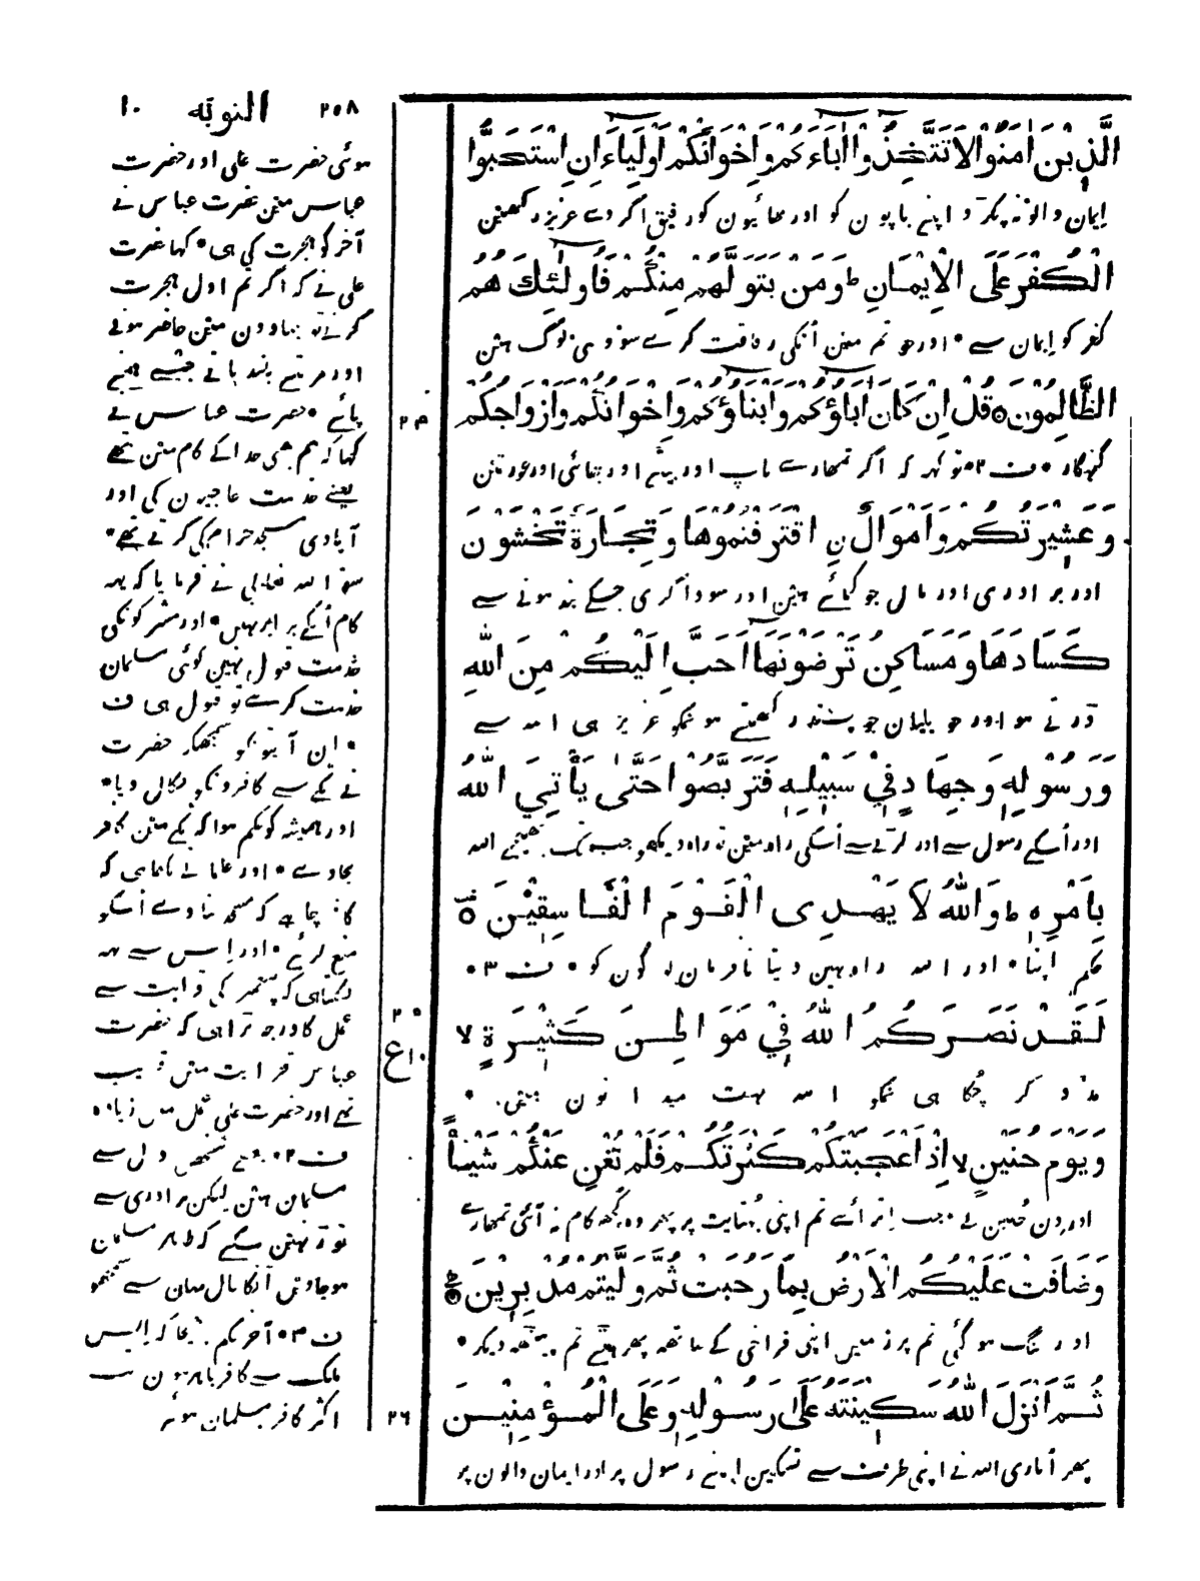 ٢٥٨ التوبة ١٠
الَّذِيْنَ اٰمَنُوْا لَا تَتَّخِذُوْا اٰبَاءَكُمْ وَاِخْوَانَكُمْ اَوْلِيَاءَ اِنِ اسْتَحَبُّوا
ایمان والو نہ پکڑو اپنے باپون کو اور بھائیون کو رفیق اگر وے عزیز رکھین
الْكُفْرَ عَلَى الْاِيْمَانِ ط وَمَنْ يَتَوَلَّهُمْ مِنْكُمْ فَاُولٰئِكَ هُمُ
کفر کو ایمان سے • اور جو تم مین اُنکی رفاقت کرے سو وہی لوگ ہین
الظَّالِمُوْنَ ٥ قُلْ اِنْ كَانَ اٰبَاؤُكُمْ وَاَبْنَاؤُكُمْ وَاِخْوَانُكُمْ وَاَزْوَاجُكُمْ
گنہگار • ف ٢ • تو کہہ کہ اگر تمھارے باپ اور بیٹے اور بھائی اور عورتین
وَعَشِيْرَتُكُمْ وَاَمْوَالُ نِ اقْتَرَفْتُمُوْهَا وَتِجَارَةٌ تَخْشَوْنَ
اور برادری اور مال جو کمائے ہین اور سوداگری جسکے بند ہونے سے
كَسَادَهَا وَمَسَاكِنُ تَرْضَوْنَهَا اَحَبَّ اِلَيْكُمْ مِنَ اللّٰهِ
ڈرتے ہو اور حویلیان جو پسند رکھتے ہو تمکو عزیز ہی اللہ سے
وَرَسُوْلِهٖ وَجِهَادٍ فِيْ سَبِيْلِهٖ فَتَرَبَّصُوْا حَتّٰى يَأْتِيَ اللّٰهُ
اور اُسکے رسول سے اور لڑنے سے اُسکی راہ مین تو راہ دیکھو جب تک بھیجے اللہ
بِاَمْرِهٖ ط وَاللّٰهُ لَا يَهْدِى الْقَوْمَ الْفَاسِقِيْنَ ٥
حکم اپنا • اور اللہ راہ نہین دیتا نافرمان لوگون کو • ف ٣ •
لَقَدْ نَصَرَكُمُ اللّٰهُ فِيْ مَوَاطِنَ كَثِيْرَةٍ لا
مدد کر چکا ہی تمکو اللہ بہت میدانون مین •
وَيَوْمَ حُنَيْنٍ لا اِذْ اَعْجَبَتْكُمْ كَثْرَتُكُمْ فَلَمْ تُغْنِ عَنْكُمْ شَيْئًا
اور دن حُنین کے • جب اِترائے تم اپنی بہتایت پر پھر وہ کچھ کام نہ آئی تمھارے
وَضَاقَتْ عَلَيْكُمُ الْاَرْضُ بِمَا رَحُبَتْ ثُمَّ وَلَّيْتُمْ مُدْبِرِيْنَ
اور تنگ ہو گئی تم پر زمین اپنی فراخی کے ساتھ پھر ہٹے تم پیٹھ دیکر •
ثُمَّ اَنْزَلَ اللّٰهُ سَكِيْنَتَهُ عَلٰى رَسُوْلِهٖ وَعَلَى الْمُؤْمِنِيْنَ
پھر اُتاری اللہ نے اپنی طرف سے تسکین اپنے رسول پر اور ایمان والون پر
٢٤
٢٥
ع ١٠
٢٦
ہوئی حضرت علی اور حضرت
عباس مین حضرت عباس نے
آخر کو ہجرت کی ہی • کہا حضرت
علی نے کہ اگر تم اول ہجرت
کرتے تو جہادون مین حاضر ہوتے
اور مرتبے بلند پاتے جیسے ہمنے
پائے • حضرت عباس نے
کہا کہ ہم بھی خدا کے کام مین تھے
یعنے خدمت حاجیون کی اور
آبادی مسجد حرام کی کرتے تھے •
سو اللہ تعالی نے فرمایا کہ یہہ
کام اُنکے برابر نہین • اور مشرکونکی
خدمت قبول نہین کوئی مسلمان
خدمت کرے تو قبول ہی ف
• اِن آیتونکو سمجھکر حضرت
نے مکے سے کافرونکو نکال دیا •
اور ہمیشہ کو حکم ہوا کہ مکے مین کافر
نجاوے • اور علما نے لکھا ہی کہ
کافر چاہے کہ مسجد بناوے اُسکو
منع کریے • اور اِس سے یہہ
نکلتا ہی کہ پیغمبر کی قرابت سے
عمل کا درجہ بڑا ہی کہ حضرت
عباس قرابت مین قریب
تھے اور حضرت علی عمل مین زیادہ
ف ٢ • بعضے شخص دل سے
مسلمان ہین لیکن برادری سے
توڑ نہین سکے کہ ظاہر مسلمان
ہو جاوین اُنکا حال یہان سے سمجھو
ف ٣ • آخر حکم بھیجا کہ اِس
ملک سے کافر باہر ہون سب
اکثر کافر مسلمان ہوئے